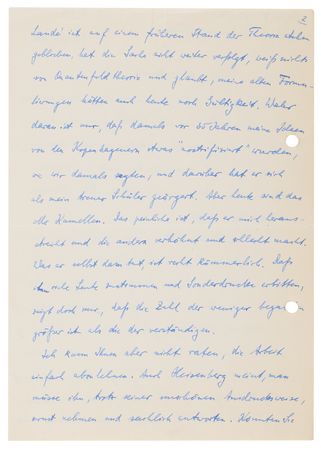 2
Landé ist auf einem früheren Stand der Theorie stehen
geblieben, hat die Sache nicht weiter verfolgt, weiß nichts
von Quantenfeldtheorie und glaubt, meine alten Formu-
lierungen hätten auch heute noch Gültigkeit. Wahr
daran ist nur, daß damals vor 35 Jahren meine Ideen
von den Kopenhagenern etwas "nostrifiziert" wurden,
wie wir damals sagten, und darüber hat er sich
als mein treuer Schüler geärgert. Aber heute sind das
olle Kamellen. Das peinliche ist, daß er mich heraus-
streicht und die andern verhöhnt und schlecht macht.
Was er selbst dann tut, ist recht kümmerlich. Daß
ihm viele Leute zustimmen und Sonderdrucke erbitten,
zeigt doch nur, daß die Zahl der weniger begabten
größer ist als die der verständigen.
Ich kann Ihnen aber nicht raten, die Arbeit
einfach abzulehnen. Auch Heisenberg meint, man
müsse ihn, trotz seiner unerhörten Ausdrucksweise,
ernst nehmen und sachlich antworten. Könnten Sie